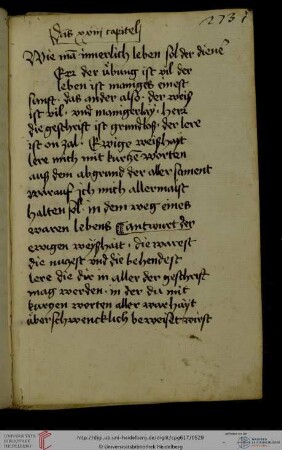 273r
Das xxiii capitel
Wie mā innerlich leben sol der diene
Er der übung ist vil der
leben ist maniges einest
sanft. das ander also. der weis
ist vil. vnd manigerlay. herr
die geschrift ist grundloß. der lere
ist on zal. Ewige weißhayt
lere mich mit kurtze worten
auß dem abgrund der aller sament
warauf ich mich allermaist
halten sol. in dem weg eines
waren lebens Antwurt der
ewigen weyßhait. die warest
die nuczest vnd die behendest
lere die dir in aller der geschrift
mag werden. in der du mit
kurczen worten aller warhayt
überschwencklich beweiset wirst
http://digi.ub.uni-heidelberg.de/diglit/cpg617/0529
© Universitätsbibliothek Heidelberg
UNIVERSITÄTS-
BIBLIOTHEK
HEIDELBERG